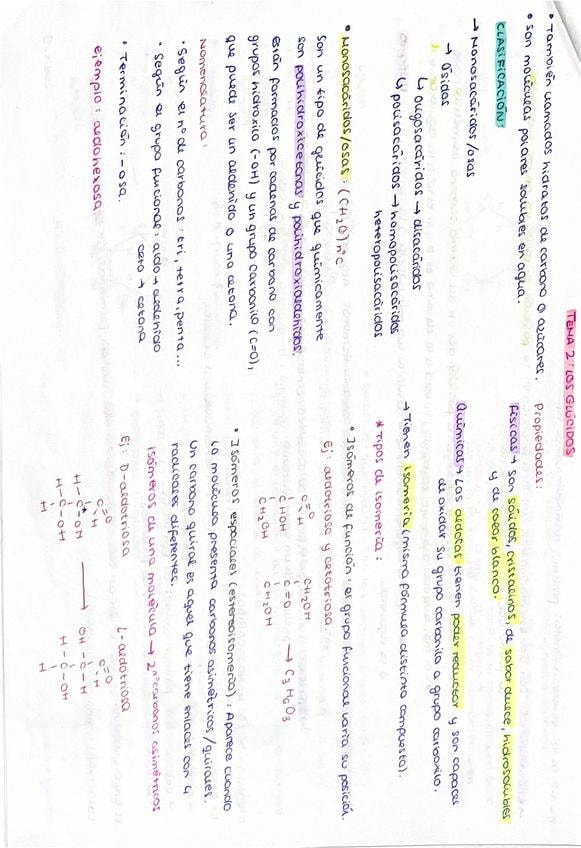 TEMA 2: LOS GLÚCIDOS
• También llamados hidratos de carbono o azúcares.
• Son moléculas polares solubles en agua.
CLASIFICACIÓN:
→ Monosacáridos/osas
→ Ósidos
↳ oligosacáridos → disacáridos
↳ polisacáridos → homopolisacáridos
heteropolisacáridos
• Monosacáridos/osas: (CH₂O)n°C
Son un tipo de glúcidos que químicamente
son polihidroxicetonas y polihidroxialdehídos.
Están formados por cadenas de carbono con
grupos hidroxilo (-OH) y un grupo carbonilo (C=O),
que puede ser un aldehído o una cetona.
Nomenclatura:
• Según el nº de carbonos: tri, tetra, penta...
• Según el grupo funcional: aldo → aldehído
ceto → cetona
• Terminación: -osa.
Ejemplo: aldohexosa.
Propiedades:
Físicas → Son sólidos, cristalinos, de sabor dulce, hidrosolubles
y de color blanco.
Químicas → Las aldosas tienen poder reductor y son capaces
de oxidar su grupo carbonilo a grupo carboxilo.
→ Tienen isomería (misma fórmula distinto compuesto).
* Tipos de isomería:
• Isómeros de función: el grupo funcional varía su posición.
Ej: aldotriosa y cetotriosa.
C=O
H
CHOH
CH₂OH
CH₂OH
C=O
CH₂OH
→ C₃H₆O₃
• Isómeros espaciales (estereoisomería): Aparece cuando
la molécula presenta carbonos asimétricos/quirales.
Un carbono quiral es aquel que tiene enlaces con 4
radicales diferentes.
isómeros de una molécula → 2^nº carbonos asimétricos
Ej: D-aldotriosa
L-aldotriosa
C=O
H
H-C-OH
H-C-OH
H
→
C=O
H
OH-C-H
H-C-OH
H